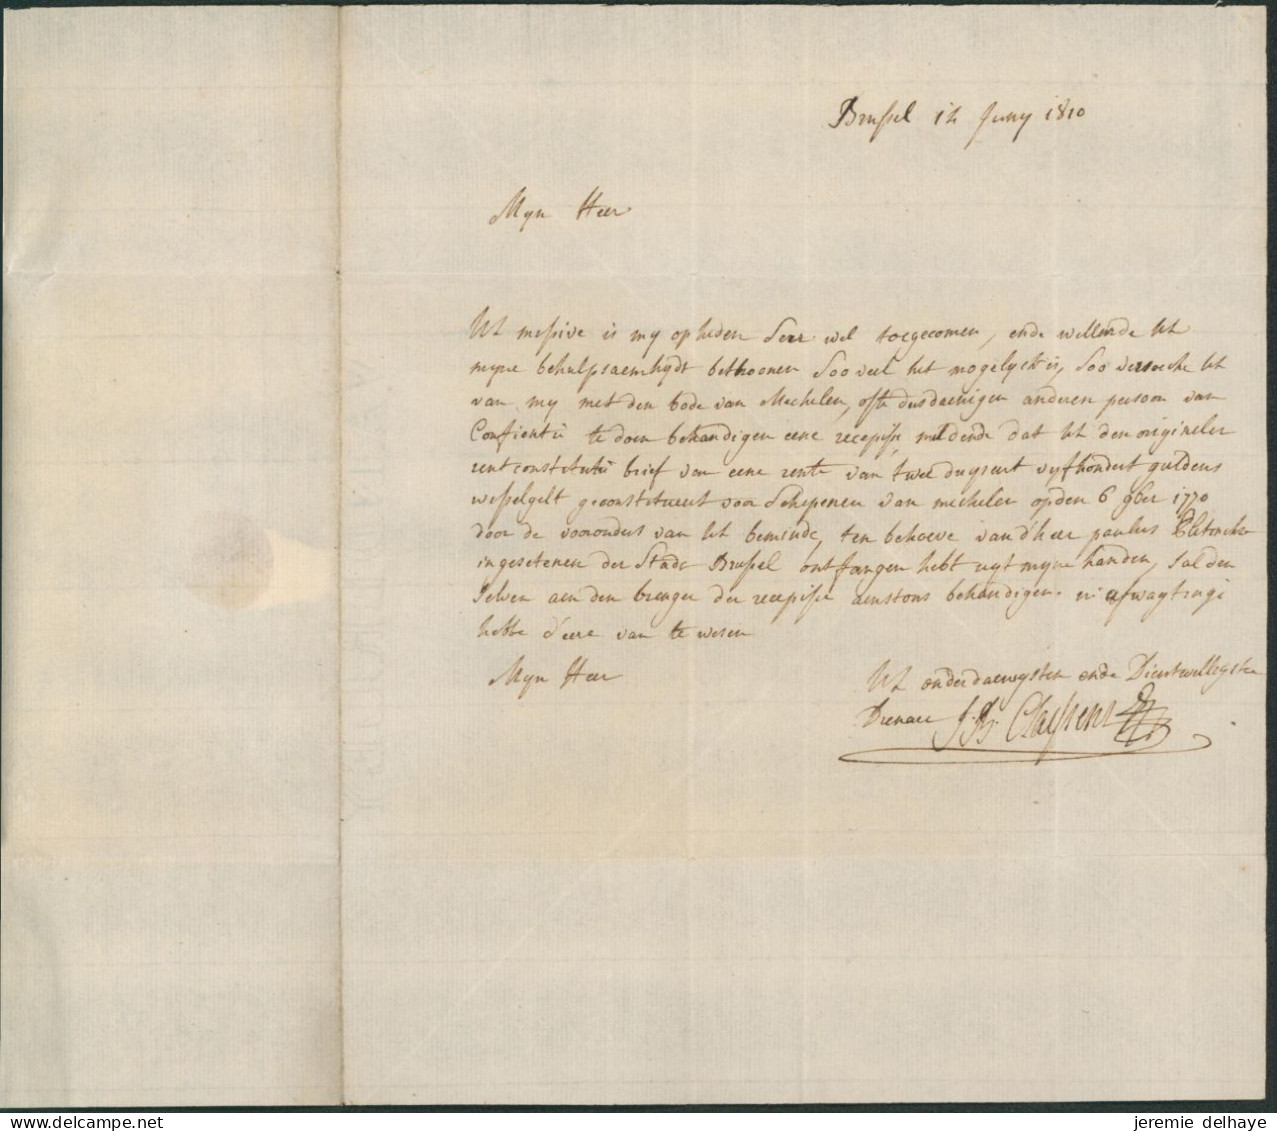 Brussel 12 Juny 1810
Myn Heer
Ul messive is my op heden seer wel toegecomen, ende willende Ul
myne behulpsaemhydt bethoonen soo veel het mogelyck is, soo versoeke Ul
van my met den bode van Mechelen, ofte dusdaenigen anderen persoon van
Confientie te doen behandigen eene recepisse meldende dat Ul den origineler
rentconstitutie brief van eene rente van twee duysent vyfhondert guldens
wisselgelt geconstitueert voor Schepenen van mechelen op den 6 9ber 1770
door de voorouders van Ul beminde, ten behoeve van d'heer paulus
ingesetenen der Stadt Brussel ontfangen hebt uyt myne handen, sal den
selven aen den brenger der recepisse aenstons behandigen. in afwagtinge
hebbe d'eere van te wesen
Myn Heer
Ul onderdaenigsten ende Dienstwilligste
Dienaer J. B. Claessens
jeremie delhaye